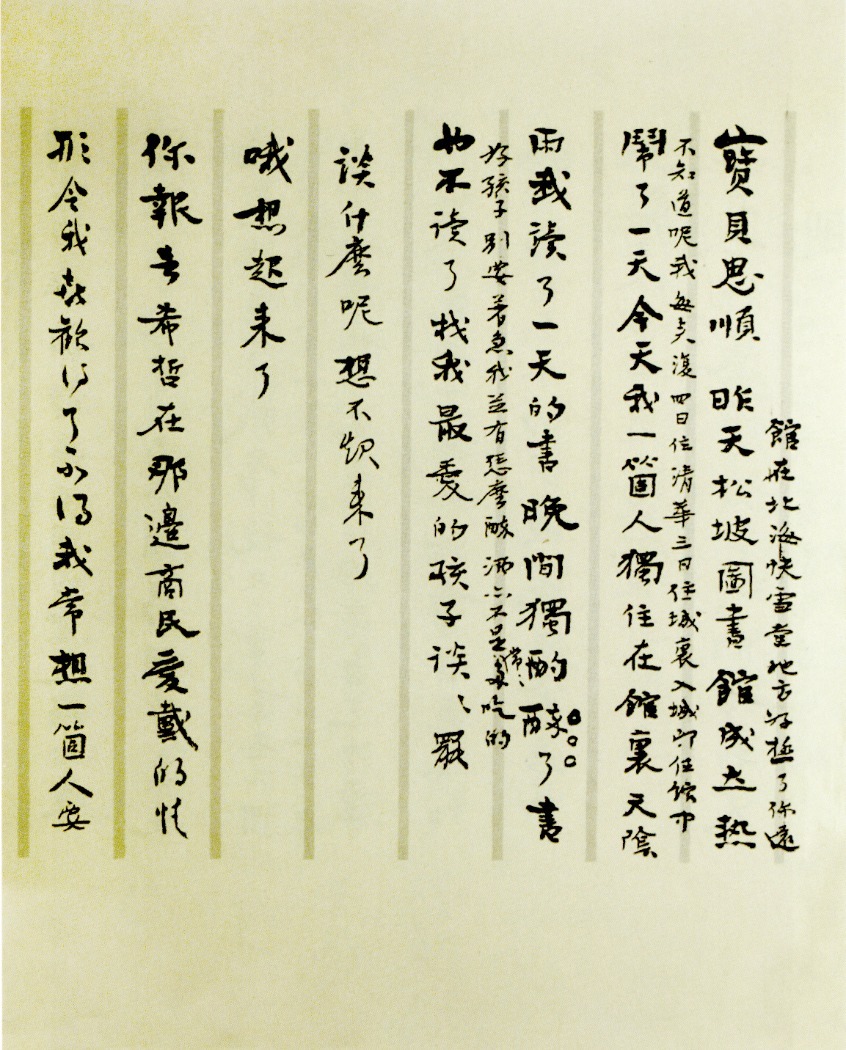 館在北海快雪堂地方好極了你還
寶貝思順 昨天松坡圖書館成立熱
不知道呢我每來復四日住清華三日住城裏入城即住館中
鬧了一天今天我一箇人獨住在館裏天陰
雨我讀了一天的書晚間獨酌醉了書
好孩子別要著急我並冇怎麼醉 酒亦不是常〻多吃的
也不讀了找我最愛的孩子談〻罷
談什麼呢想不起來了
哦想起來了
你報告希哲在那邊商民愛戴的情
形令我喜歡得了不得我常想一箇人要